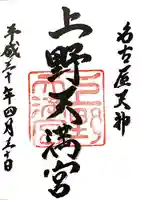 名古屋天神
上野天満宮
平成三十年四月三十日